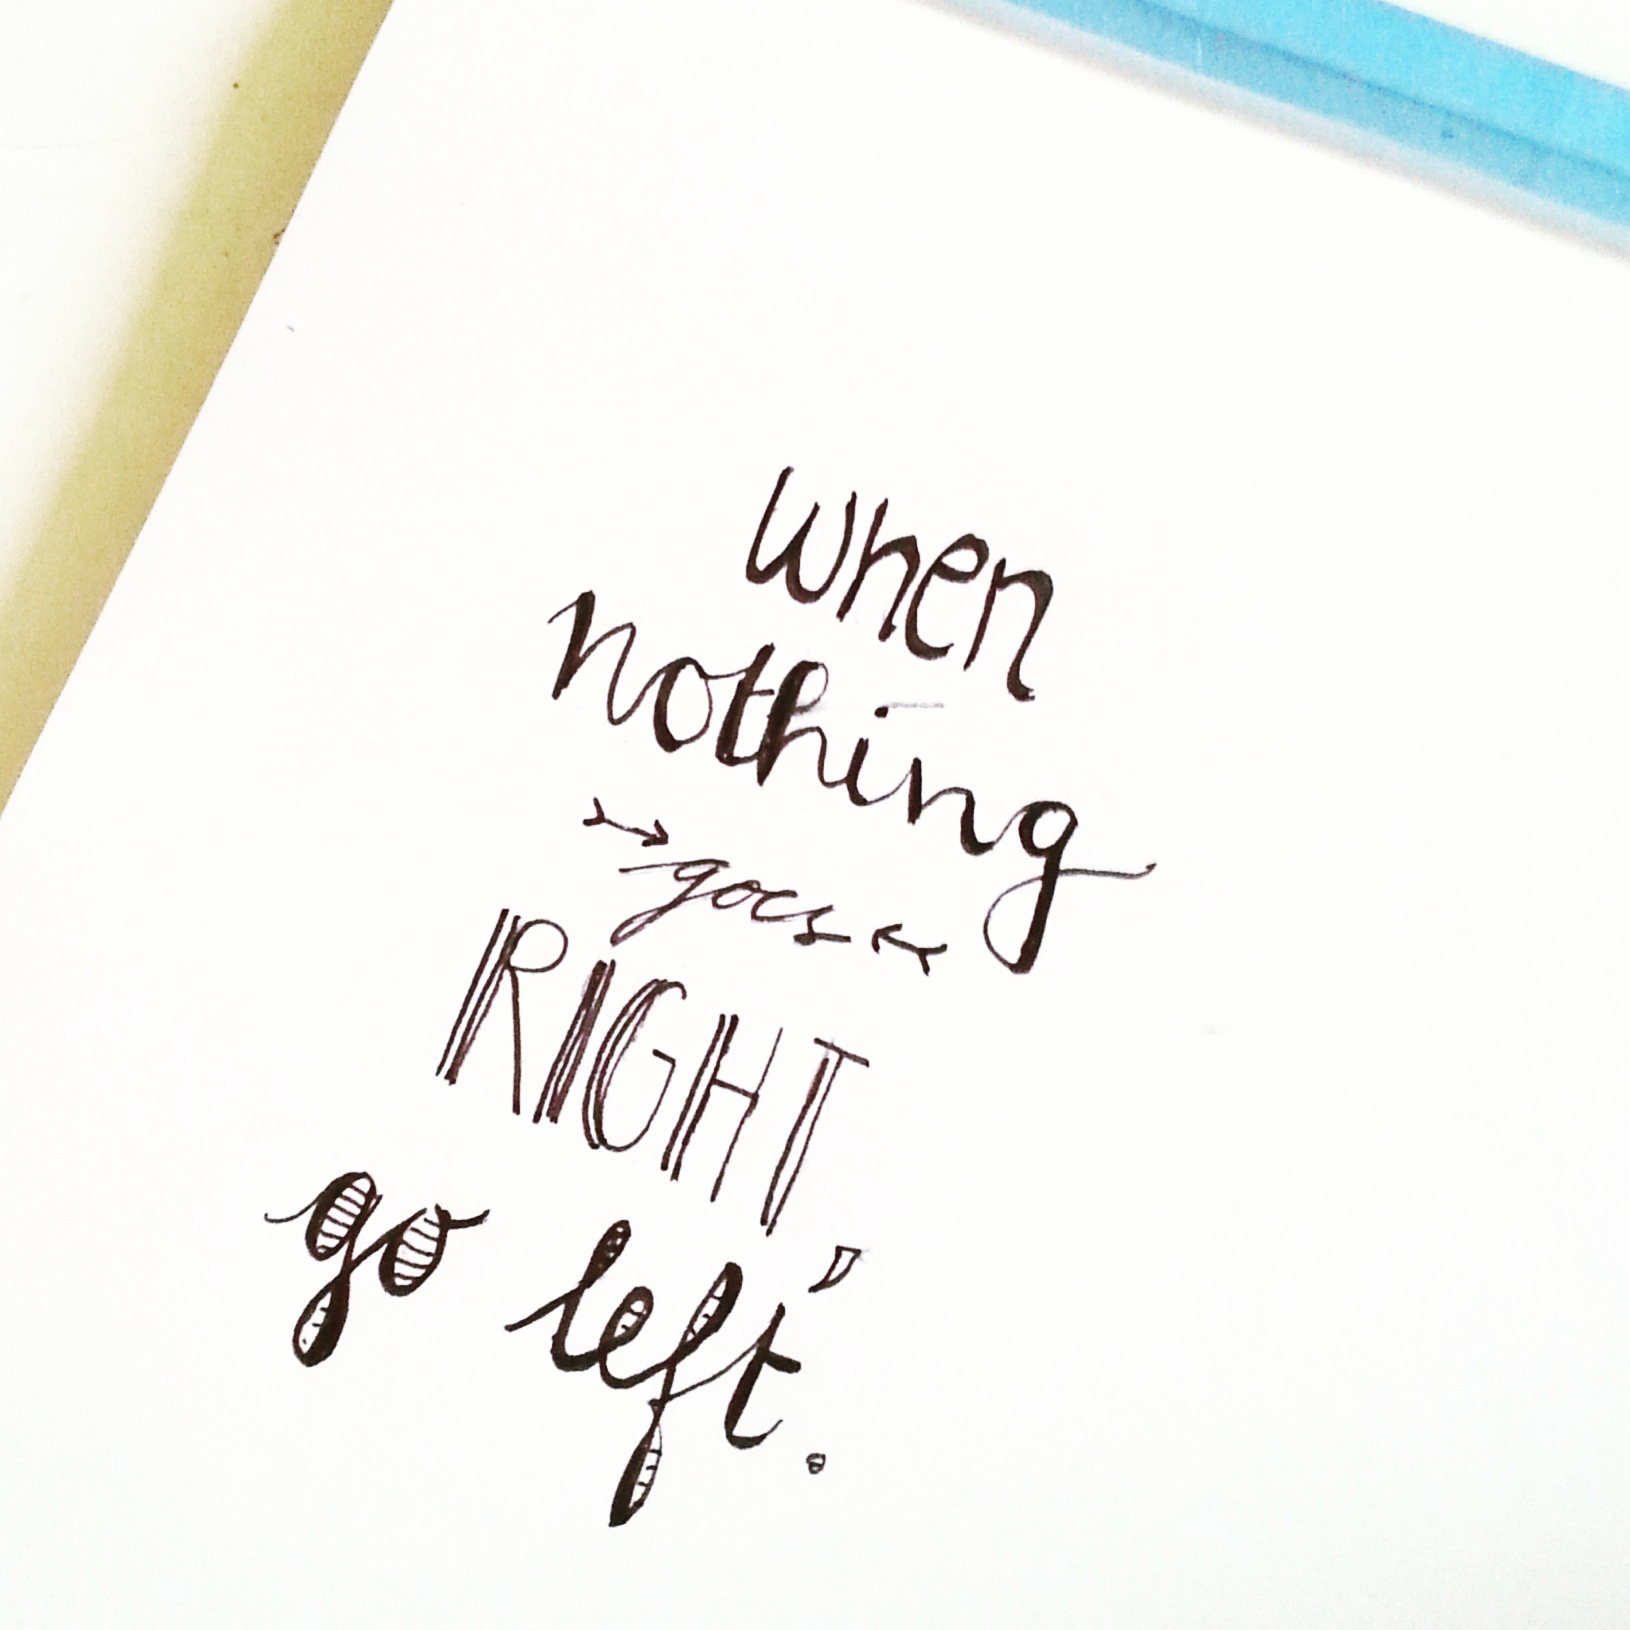 when
nothing
goes
RIGHT,
go left.